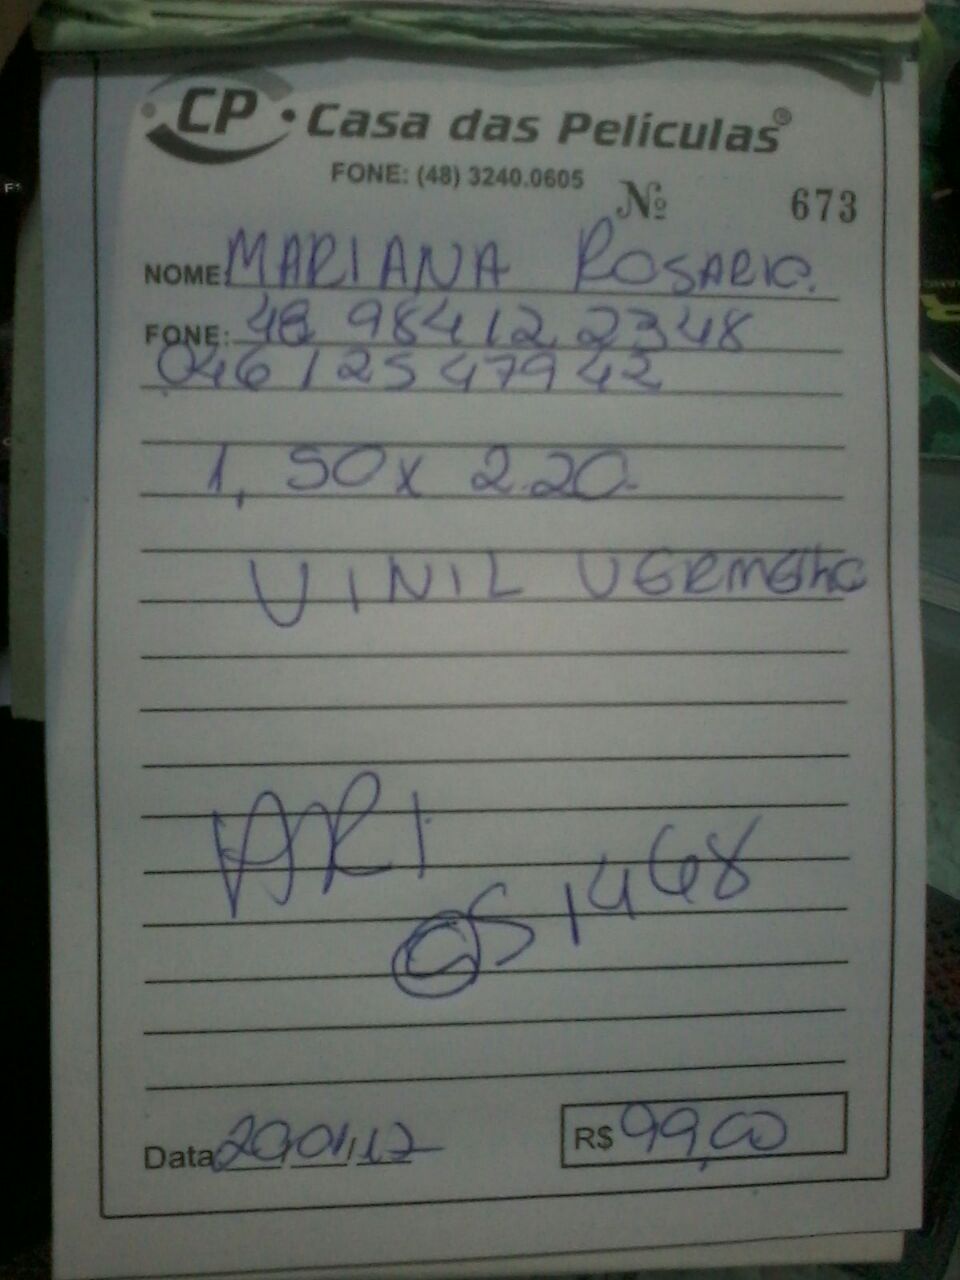 CP Casa das Películas®
FONE: (48) 3240.0605
Nº 673
NOME MARIANA ROSARIO.
FONE: 48 98412 2348
046 125 479 42
1,50 x 2.20
VINIL VERMELHO
ARI
OS 1468
Data 20/01/17 R$ 99,00